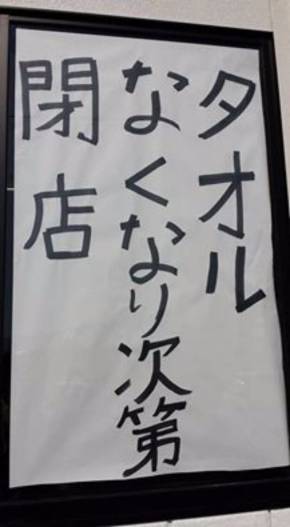 タオル
なくなり次第
閉店